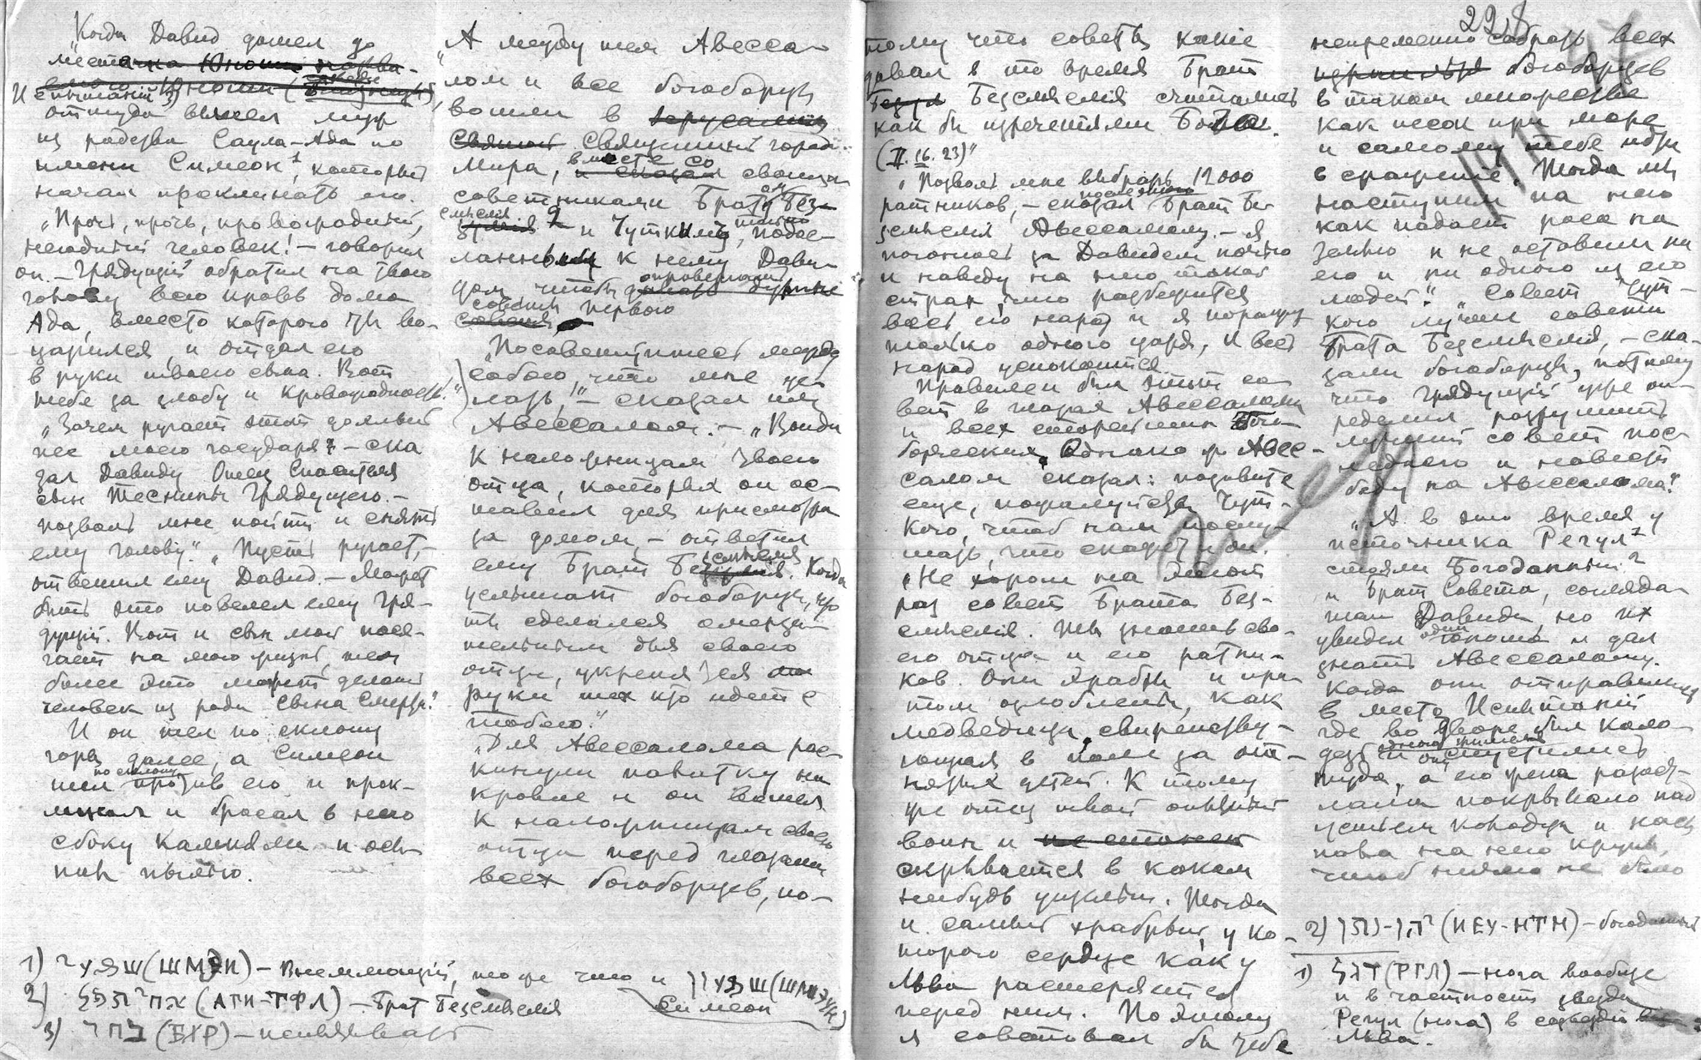 Когда Давид дошел до
места
Испытаний
откуда вышел муж
из родства Саула-Ада по
имени Симеон¹, который
начал проклинать его.
„Прочь, прочь, кровожадный,
негодный человек! — говорил
он. — Грядущий обратил на твою
голову всю кровь дома
Ада, вместо которого ты во-
царился, и отдал его
в руки твоего сына. Вот
тебе за злобу и кровожадность.“
„Зачем ругает этот дохлый
пес моего государя? — ска
зал Давиду Отец Спасенья
сын Теснины Грядущего. —
позволь мне пойти и снять
ему голову“. „Пусть ругает, —
ответил ему Давид. — Может
быть это повелел ему Гря-
дущий. Вот и сын мой пося-
гает на мою жизнь, тем
более это может делать
человек из рода Сына Смерти.“
И он шел по склону
горы далее, а Симеон
шел по склону против его и прок-
линал и бросал в него
сбоку камнями и осы-
пал пылью.
1) (ШМЭИ) — Внемлющий, то же что и (ШМЭУН) Симеон
2) (АГИ-ТФЛ) — Брат Безсмыслия
3) (БХР) — испытывает
А между тем Авесса-
лом и все богоборцы
вошли в Иерусалим
священный город
мира, вместе со своими
советниками Братом Без-
смыслия ² и Чутким, тайно подос-
ланным к нему Дави-
дом чтобы опровергать
советы первого
„Посоветуйтесь между
собою, что мне де-
лать!“ — сказал им
Авессалом. — „Войди
к наложницам твоего
отца, которых он ос-
тавил для присмотра
за домом, — ответил
ему Брат Безсмыслия. Когда
услышат богоборцы, что
ты сделался омерзи-
тельным для своего
отца, укрепятся
руки тех кто идет с
тобою.“
Для Авессалома рас-
кинули палатку на
кровле и он вошел
к наложницам своего
отца перед глазами
всех богоборцев, по-
тому что советы какие
давал в то время Брат
Безсмыслия считались
как бы изречениями Бога.
(II. 16. 23)“
„Позволь мне выбрать 12000
ратников, — сказал после этого Брат Бе-
змыслия Авессалому. — Я
погонюсь за Давидом ночью
и наведу на него такой
страх, что разбежится
весь его народ и я поражу
только одного царя, и весь
народ успокоится.
Правилен был этот со-
вет в глазах Авессалома
и всех старейшин Бого-
борческих. Однако же Авес-
салом сказал: позовите
еще, пожалуйста, Чут-
кого, чтоб нам послу-
шать, что скажет и он.
„Не хорош на этот
раз совет Брата Без-
смыслия. Ты знаешь сво-
его отца и его ратни-
ков. Они храбры и при
том озлоблены, как
медведица свирепству-
ющая в поле за от-
нятых детей. К тому
же отец твой опытный
воин и не станет
скрывается в каком
нибудь ущельи. Тогда
и самый храбрый, у ко-
торого сердце как у
Льва растеряется
перед ним. Поэтому
я советовал бы тебе
228
непременно собрать всех
богоборцев
в таком множестве
как песок при море
и самому тебе идти
в сражение. Тогда мы
наступим на него
как падает роса на
землю и не оставим ни
его и ни одного из его
людей.“ „Совет Чут-
кого лучше совета
Брата Безсмыслия, — ска-
зали богоборцы, потому
что Грядущий уже оп-
ределил разрушить
лучший совет пос-
леднего и навести
беду на Авессалома.“
„А в это время у
источника Регул¹
стояли Богоданный ²
и Брат Совета, соглядa-
таи Давида, но их
увидел один юноша и дал
знать Авессалому.
Когда они отправились
в место Испытаний
где во дворе был коло-
дезь одного жителя они спустились
туда, а его жена разос-
лала покрывало над
устьем колодца и насы-
пала на него крупы,
чтоб ничего не было
2) (ИЕУ-НТН) — богоданный
1) (РГЛ) — нога вообще
и в частности звезда
Регул (нога) в созвездии
Льва.